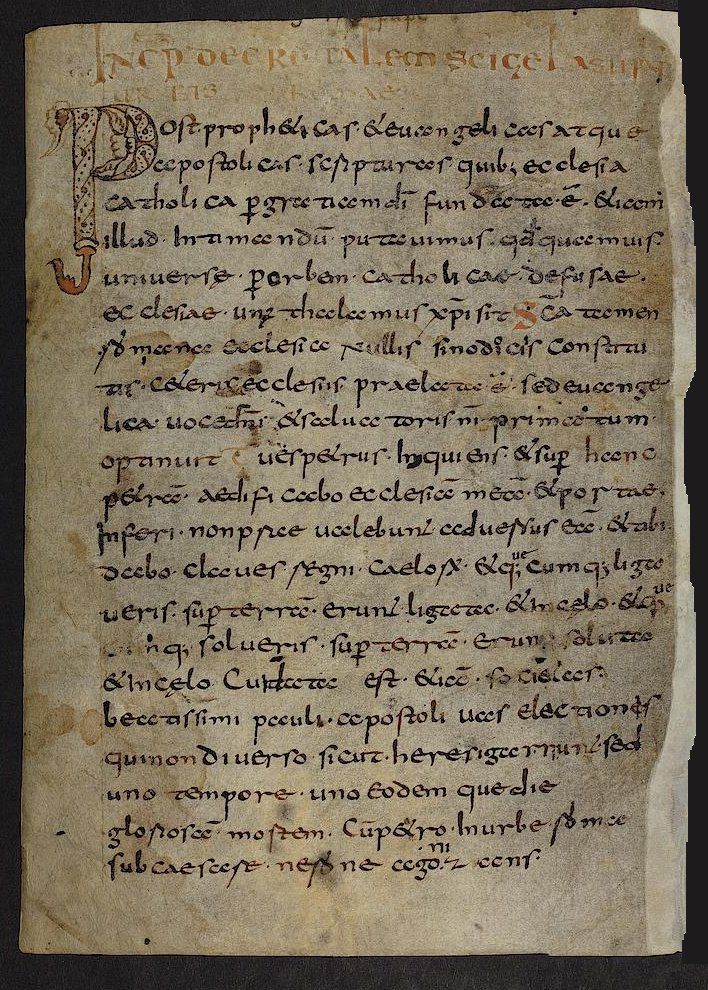 INCP DECRETALEM SCI GELASII PAPE
URBIS ROMAE
Post propheticas · & euangelicas atque
apostolicas · scripturas quib; ecclesia
catholica p gratiam di fundata · ē · &iam
illud · Intimandū · putauimus · qd quamuis ·
uniuersę · p orbem · catholicae · defusae ·
ecclesiae · unus thalamus xpi sit Sca tamen
romana ecclesia Nullis sinodicis constitu
tis · c&eris ecclesiis praelata · ē · sed euange
lica uoce dni & saluatoris nri primatum ·
optinuit Tu es p&rus · Inquiens · & sup hanc
p&rā · aedificabo ecclesiā meā · & portae ·
Inferi · non preualebunt aduersus eā · & tibi ·
dabo · claues regni · caelorum · & quecumq; liga
ueris · sup terrā · erunt ligata · & In celo · & que
cumq; solueris · sup terrā · erunt soluta
& In celo Cui data est · & iā · soci&as ·
beatissimi pauli · apostoli uas electionis
qui non diuerso sicut · heresi garriunt · sed
uno tempore · uno eodemque die
gloriosā mortem · Cū p&ro · In urbe · roma
sub caesare · nerone agonizans ·